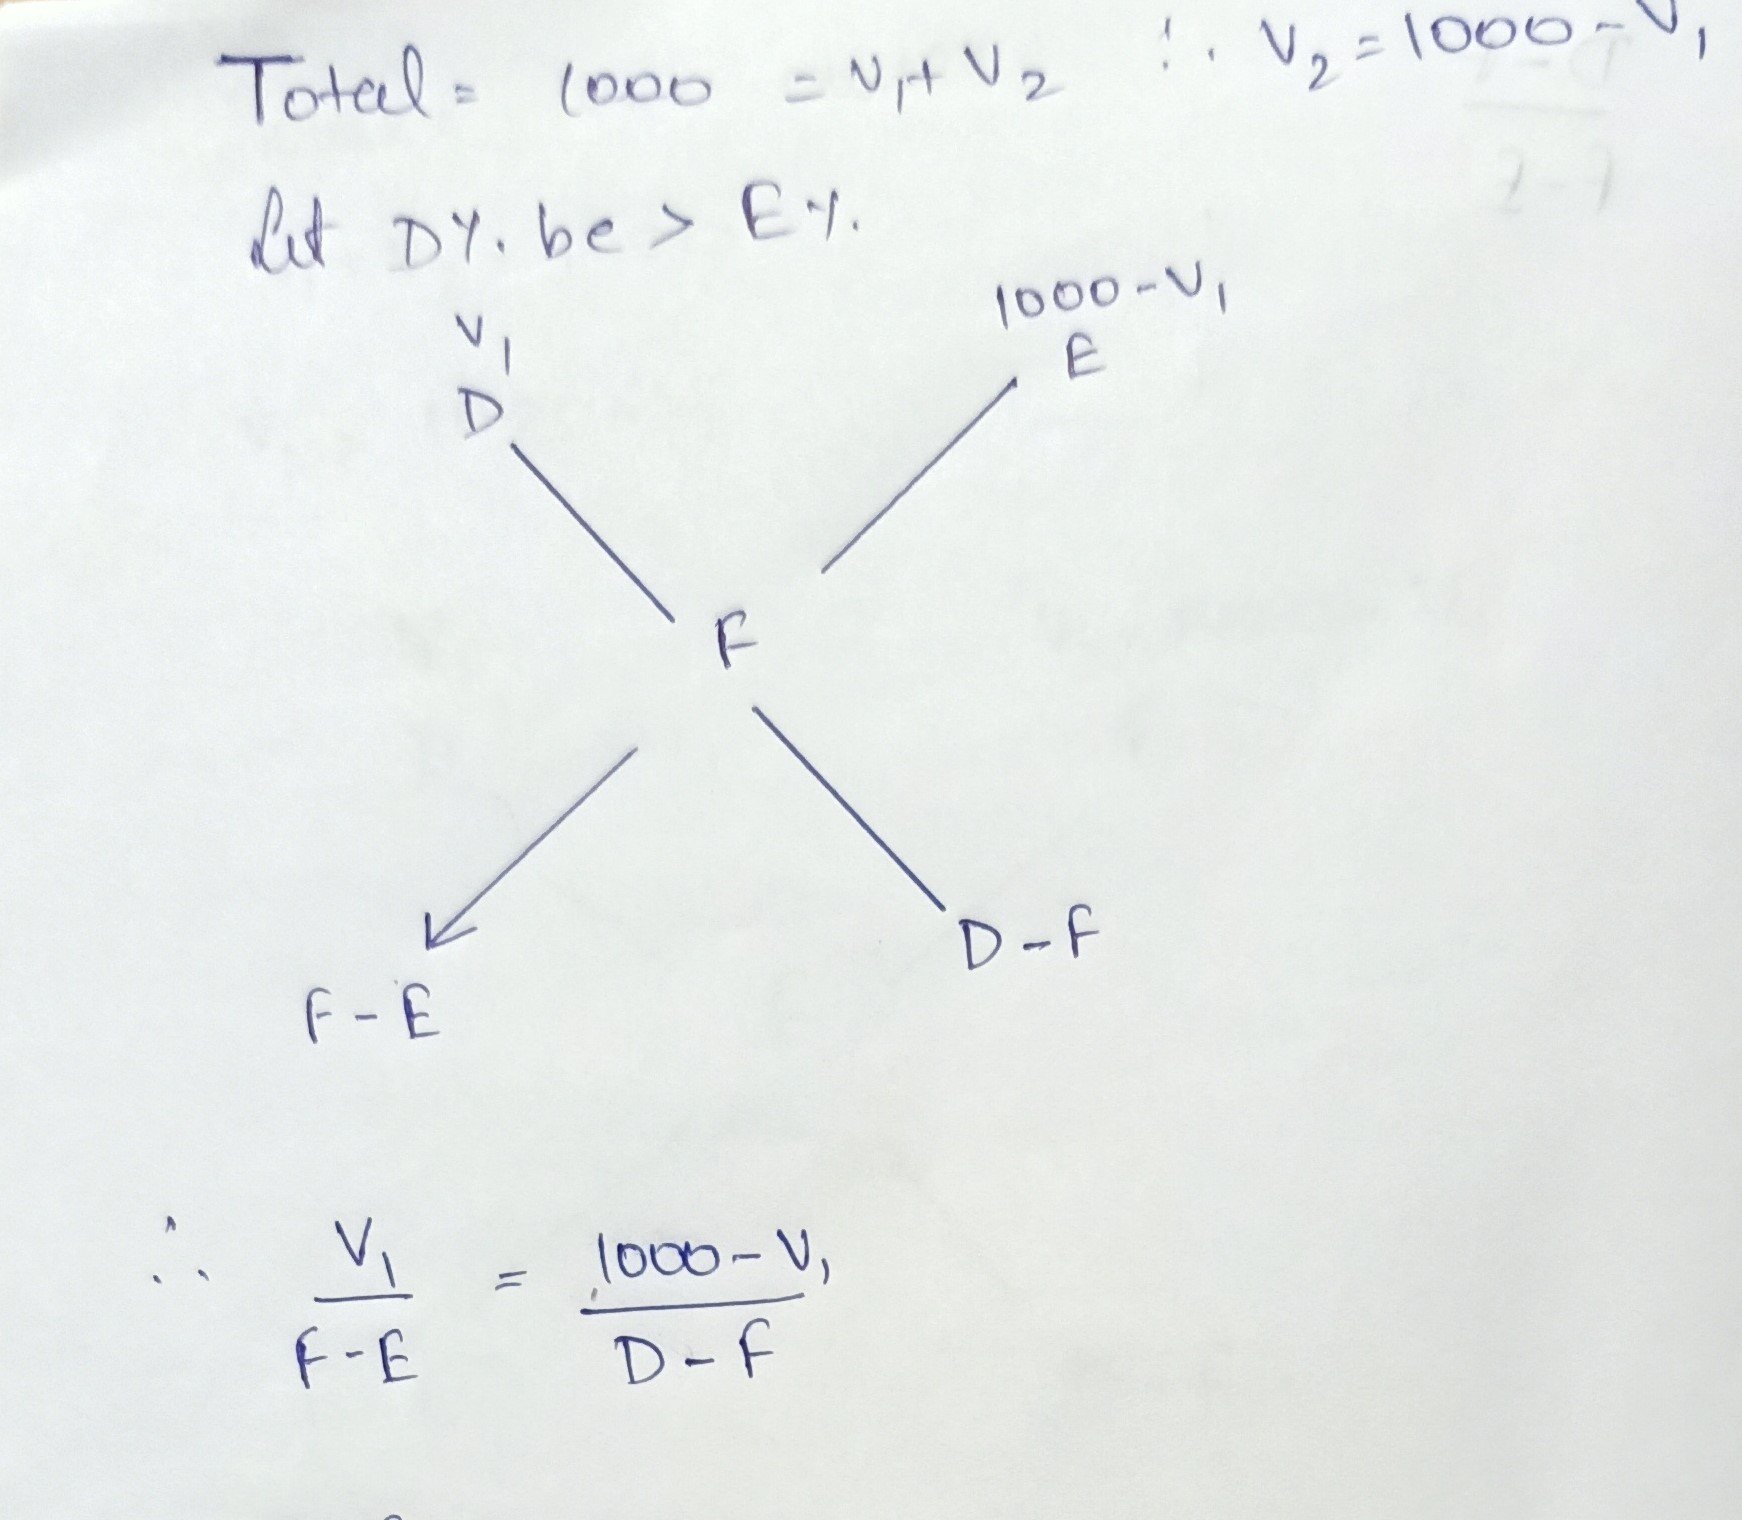 Total = 1000 = V₁ + V₂ ∴ V₂ = 1000 - V₁
Let D%. be > E%.
V₁ 1000 - V₁
D E
F
F - E D - F
∴ V₁/(F - E) = (1000 - V₁)/(D - F)